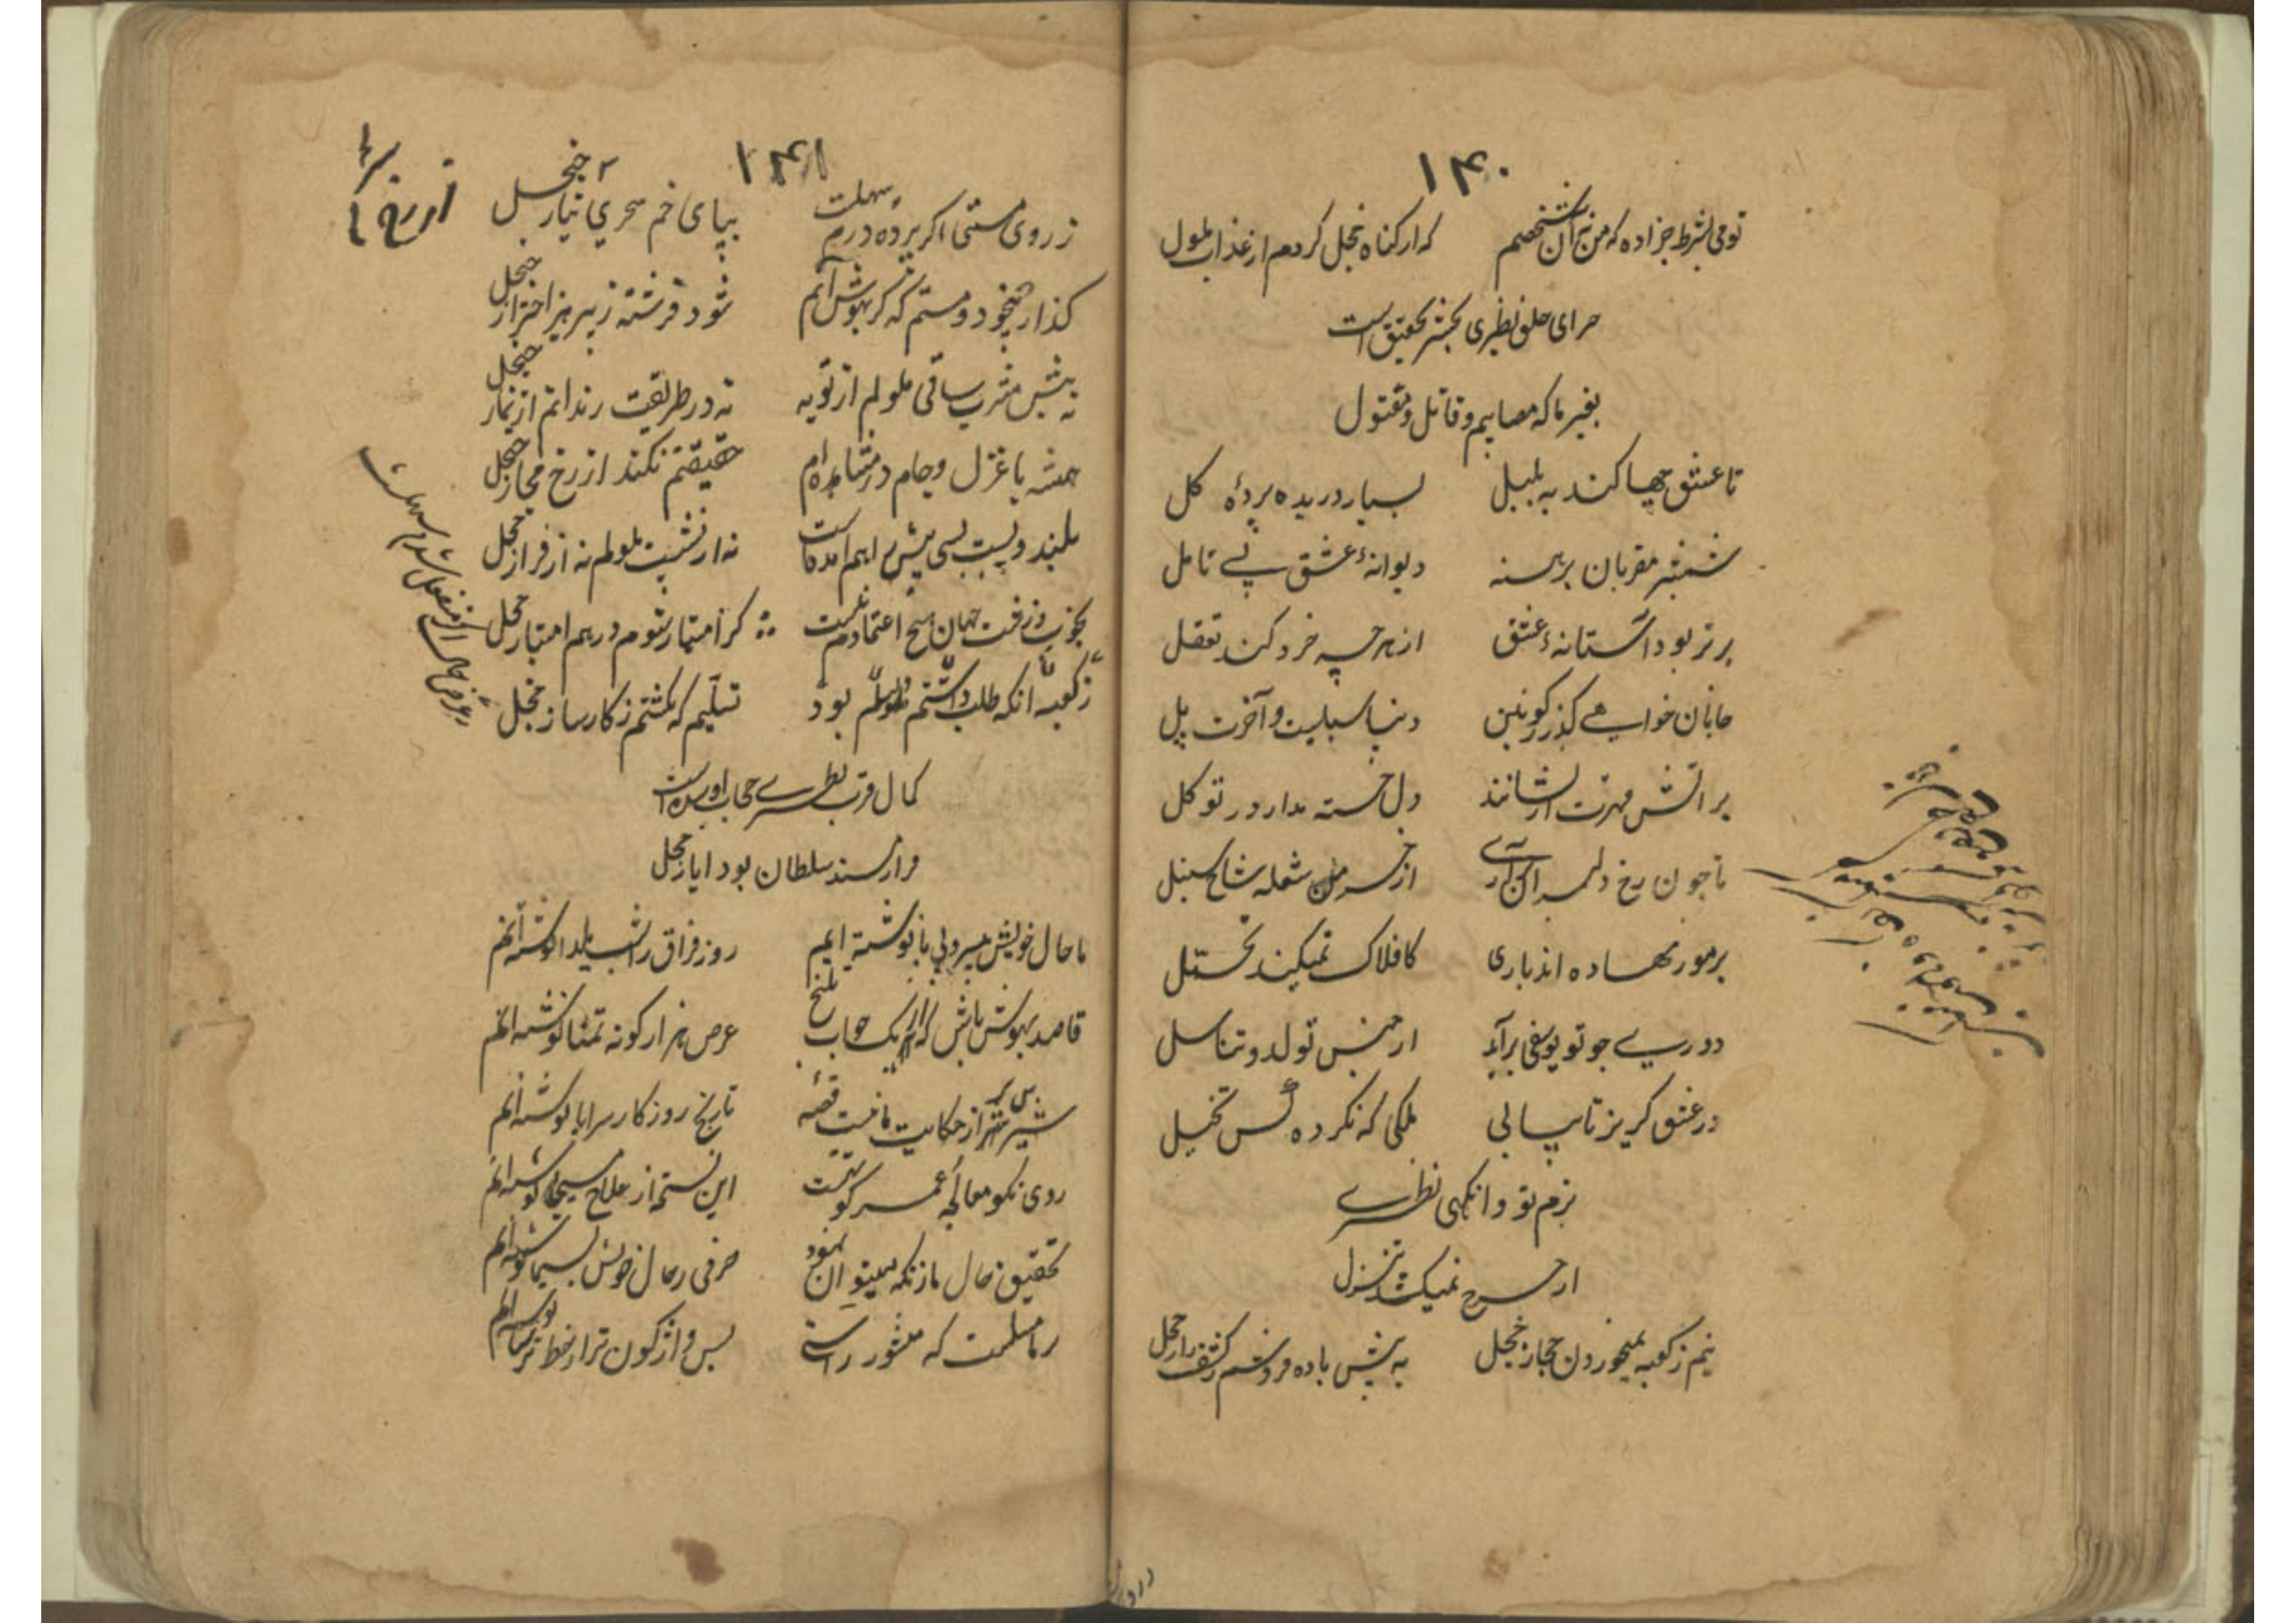 ۱۴۰
تو می بشرط جزا ده که من نه آن شخصم که از کناه خجل کردم از عذاب ملول
سرای خلق نظیری بحشر تحقیق است
بغیر ما که مصابیم و قاتل و مقتول
تا عشق چها کند به بلبل بسیار دریده پردهٔ کل
شمشیر مقربان برهنه دیوانهٔ عشق بی تامل
برتر بود آستانهٔ عشق از هرچه خرد کند تعقل
جانان خواهی کذر ز کونین دنیا سبلیست و آخرت پل
بر آتش مهرت ار نشانند دل خسته مدار در توکل
تا چون رخ دلبر آن آرای از خرمن شعله شاخ سنبل
بر مور نهاده اند باری کافلاک نمیکند تحمل
دوری چو تو یوسفی برآید از جنس تولد و تناسل
در عشق کریز تا بیابی ملکی که نکرده کس تخیل
بزم تو و انکهی نظیری
از چرخ نمیکشد تنزل
نیم ز کعبه بمیخوردن حجاز خجل به پیش باده فروشم ز کشف راز خجل
۱۴۱
ز روی مستی اکر پرده درم سهلت بپای خم سحری نیاز خجل
کذار بیخود و مستم که کر بهوش آیم شود فرشته ز پرهیز احتراز خجل
نه پیش مشرب ساقی ملولم از توبه نه در طریقت رندانم از نماز خجل
همیشه با غزل و جام در مشاهده‌ام حقیقتم نکند از رخ مجاز خجل
بلند و پست بسی پیش راهم آمده است نه از نشیب ملولم نه از فراز خجل
بخوب و زشت جهان هیچ اعتمادم نیست کز امتیاز شوم در هم امتیاز خجل
ز کعبه آنکه طلب داشتم بود تسلیم که کشتم ز کارساز خجل
کمال قرب نظیری حجاب آورده است
فراز مسند سلطان بود ایاز خجل
ما حال خویش بی سر و بی پا نوشته ایم روز فراق را شب یلدا نوشته ایم
قاصد بهوش باش که از یک جواب تلخ عرض هزار کونه تمنا نوشته ایم
شیرین تر از حکایت ما نیست قصهٔ تاریخ روزکار سراپا نوشته ایم
روی نکو معالجهٔ عمر کوتهست این نسخه از علاج مسیحا نوشته ایم
تحقیق حال ما ز نکه میتوان نمود حرفی ز حال خویش بسیما نوشته ایم
بر ما مسلمست که منشور راستی بس واژکون ترا ز خط ترسا نوشته ایم